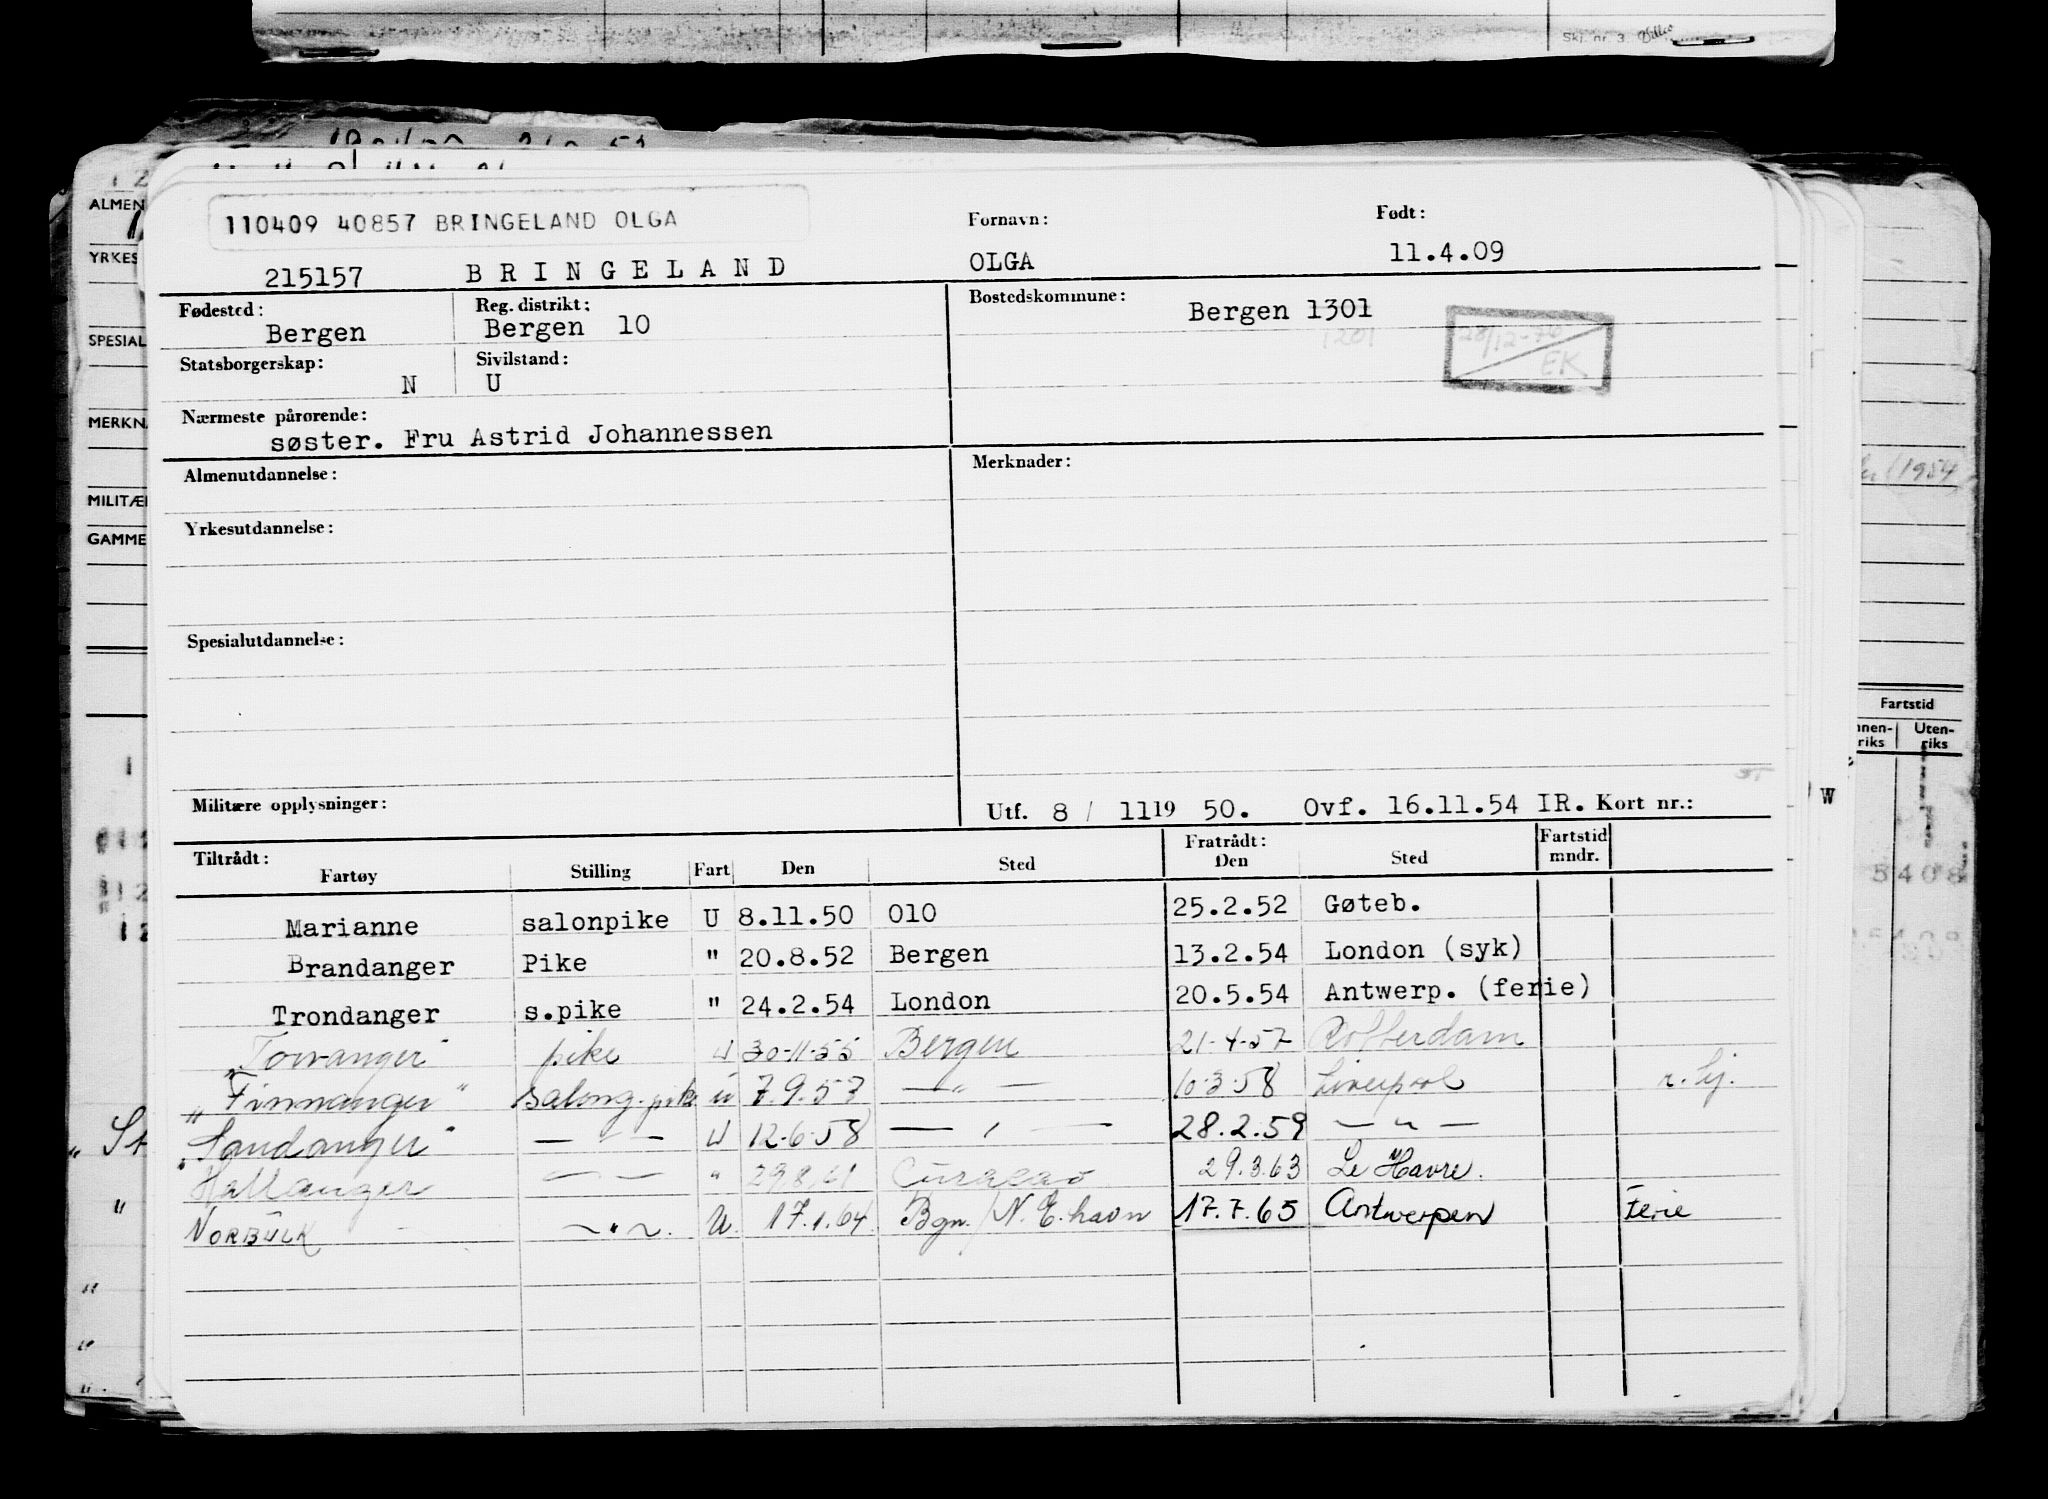 Skj. nr. 3.
110409 40857 BRINGELAND OLGA
Fornavn:
Født:
215157 BRINGELAND OLGA 11.4.09
Fødested: Reg. distrikt: Bostedskommune:
Bergen Bergen 10 Bergen 1301
1201
Statsborgerskap: Sivilstand:
N U
EK
Nærmeste pårørende:
søster. Fru Astrid Johannessen
Almenutdannelse: Merknader:
Yrkesutdannelse:
Spesialutdannelse:
Militære opplysninger: Utf. 8 / 1119 50. Ovf. 16.11.54 IR. Kort nr.:
Tiltrådt: Fratrådt: Fartstid
Fartøy Stilling Fart Den Sted Den Sted mndr.
Marianne salonpike U 8.11.50 Olo 25.2.52 Gøteb.
Brandanger Pike " 20.8.52 Bergen 13.2.54 London (syk)
Trondanger s.pike " 24.2.54 London 20.5.54 Antwerp. (ferie)
"Torvanger" pike U 30-11-55 Bergen 21-4-57 Rotterdam
"Finnanger" salong.pike U 7.9.57 — " — 10-3-58 Liverpool
"Sandanger" — " — U 12-6-58 — " — 28.2.59 — " —
Hallanger — — " 29.8.61 Curacao 29.3.63 Le Havre.
NORBULK — " —. U. 17.1.64. Bgn./N.E.havn 17.7.65 Antwerpen Ferie
ALMEN
YRKES
SPESIAL
MERKNA
MILITÆR
GAMME
1954
Fartstid
nnen-
riks
Uten-
riks
W
5408